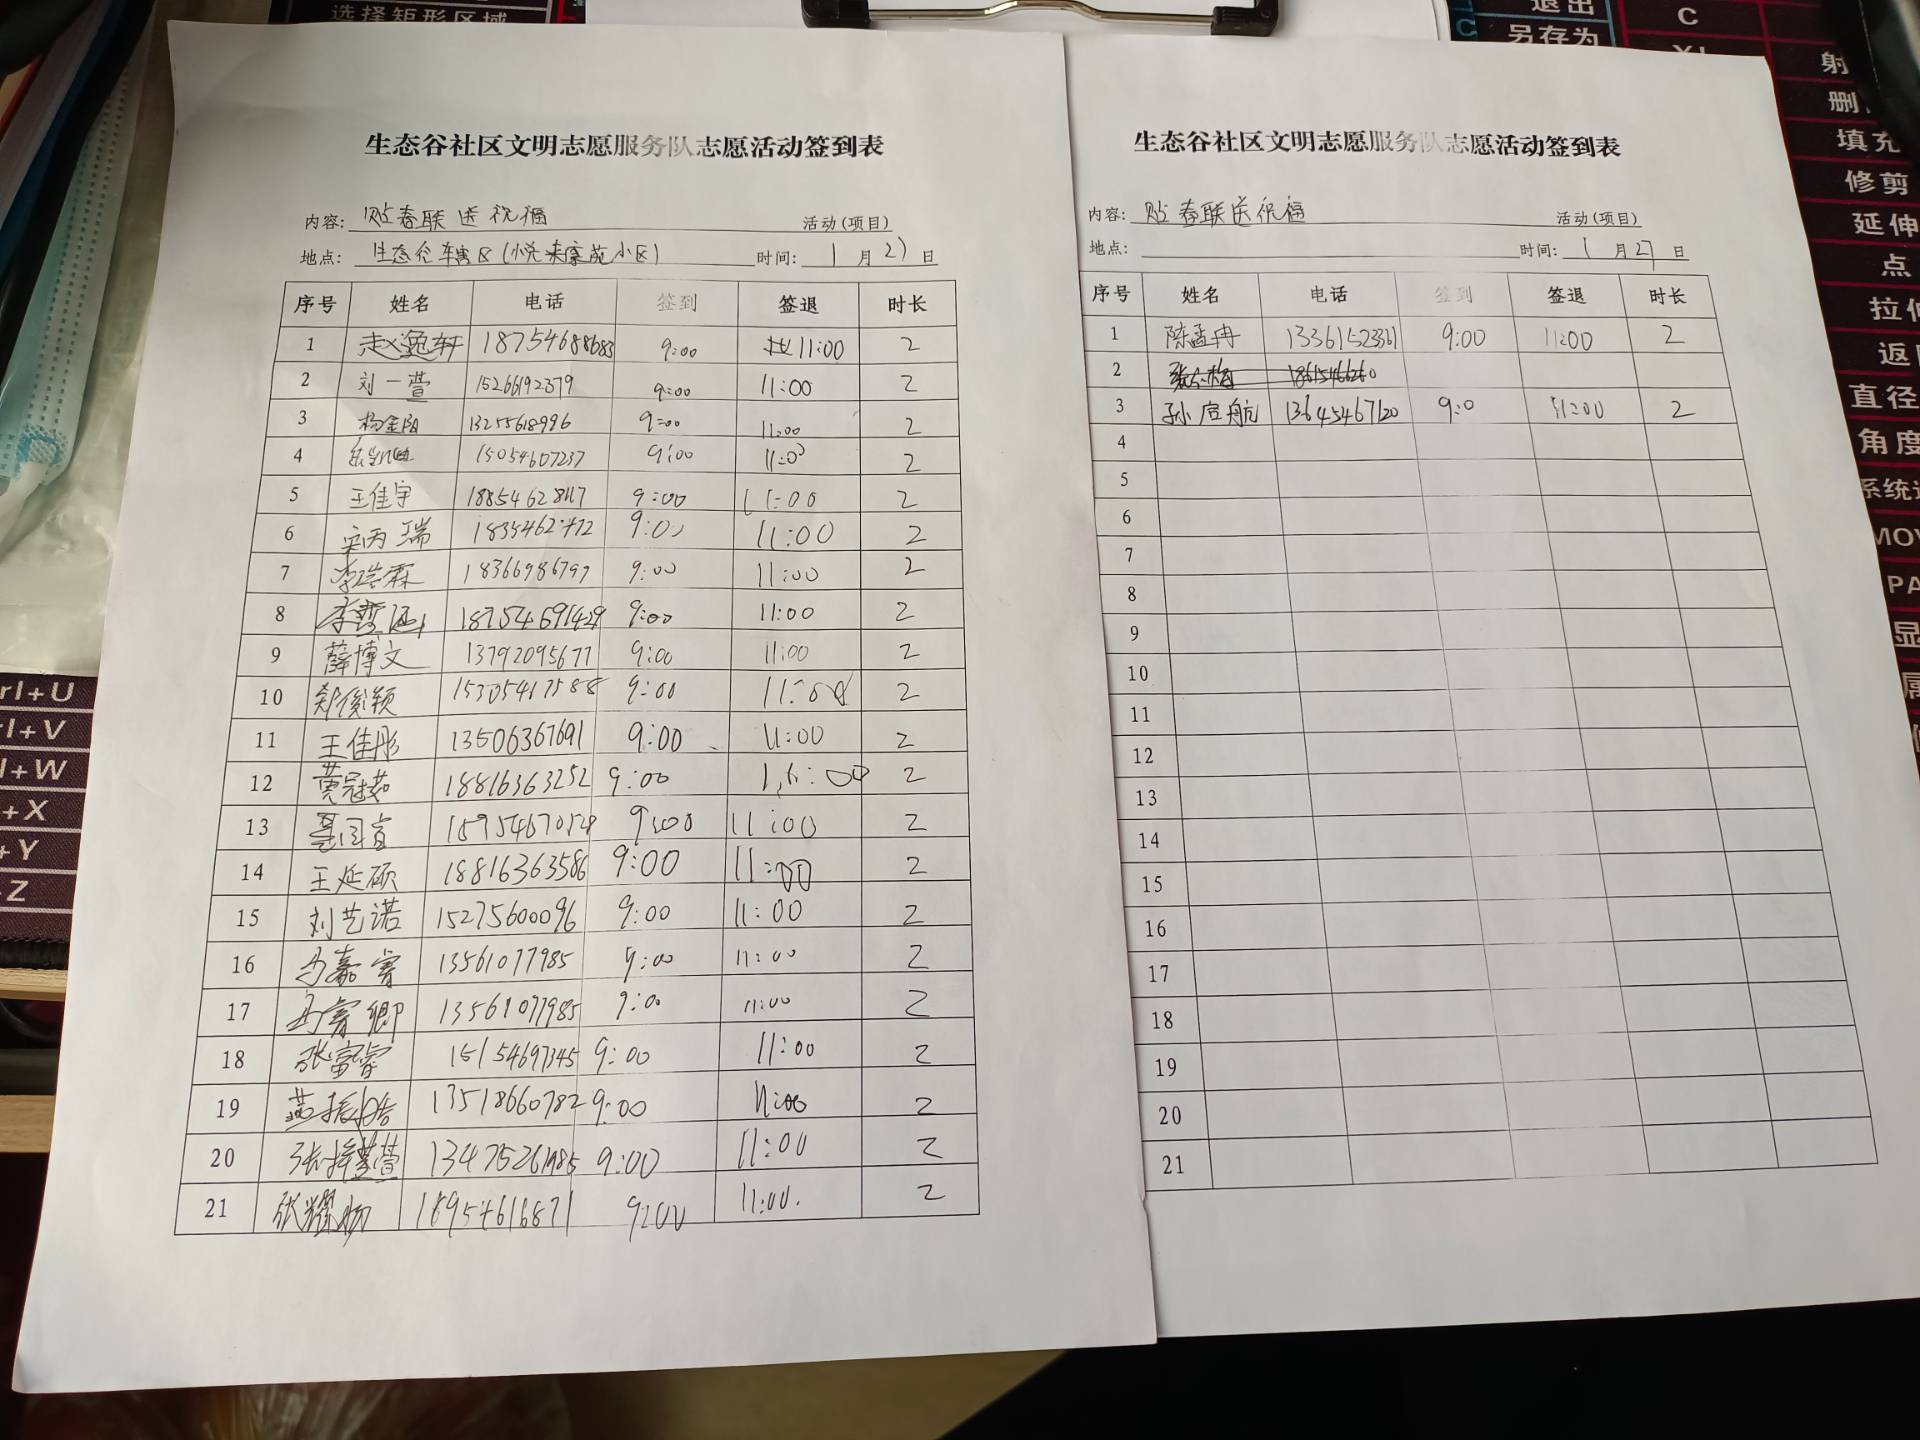 选择矩形区域
退出
另存为
C
C
射
删
填充
修剪
延伸
点
拉伸
返回
直径
角度
MOV
PA
显
属
rl+U
rl+V
l+W
+X
+Y
-Z
生态谷社区文明志愿服务队志愿活动签到表
内容: 贴春联送祝福 活动(项目)
地点: 生态谷辖区(悦来富苑小区) 时间: 1月27日
序号 姓名 电话 签到 签退 时长
1 赵逸轩 18754688683 9:00 11:00 2
2 刘一萱 15266192379 9:00 11:00 2
3 杨金阳 13255618996 9:00 11:00 2
4 15054607237 9:00 11:00 2
5 王佳宇 18854628117 9:00 11:00 2
6 宋丙瑞 9:00 11:00 2
7 李瑞霖 18366986797 9:00 11:00 2
8 李哲涵 18754691429 9:00 11:00 2
9 薛博文 13792095677 9:00 11:00 2
10 郑俊颖 15305417588 9:00 11:00 2
11 王佳彤 13506367691 9:00 11:00 2
12 黄冠茹 18816363252 9:00 11:00 2
13 9:00 11:00 2
14 王延硕 18816363586 9:00 11:00 2
15 刘艺诺 15275600096 9:00 11:00 2
16 冯嘉睿 13561077985 9:00 11:00 2
17 冯睿卿 13561077985 9:00 11:00 2
18 张富睿 15154697345 9:00 11:00 2
19 燕振皓 13518660782 9:00 11:00 2
20 13475261985 9:00 11:00 2
21 张耀杨 18954616871 9:00 11:00. 2
生态谷社区文明志愿服务队志愿活动签到表
内容: 贴春联送祝福 活动(项目)
地点: 时间: 1月27日
序号 姓名 电话 签到 签退 时长
1 陈孟冉 13361523361 9:00 11:00 2
2 18615466260
3 孙启航 13645467120 9:0 11:00 2
4
5
6
7
8
9
10
11
12
13
14
15
16
17
18
19
20
21